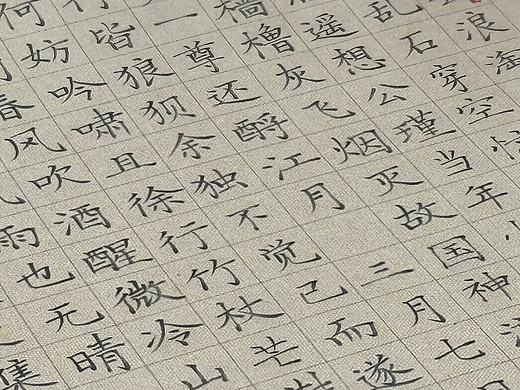 浪淘
乱石穿空
遥想公瑾当年
樯橹灰飞烟灭故国神
一尊还酹江月三月七
行皆狼狈余独不觉己而遂
何妨吟啸且徐行竹杖芒
春风吹酒醒微冷山
雨也无晴
集